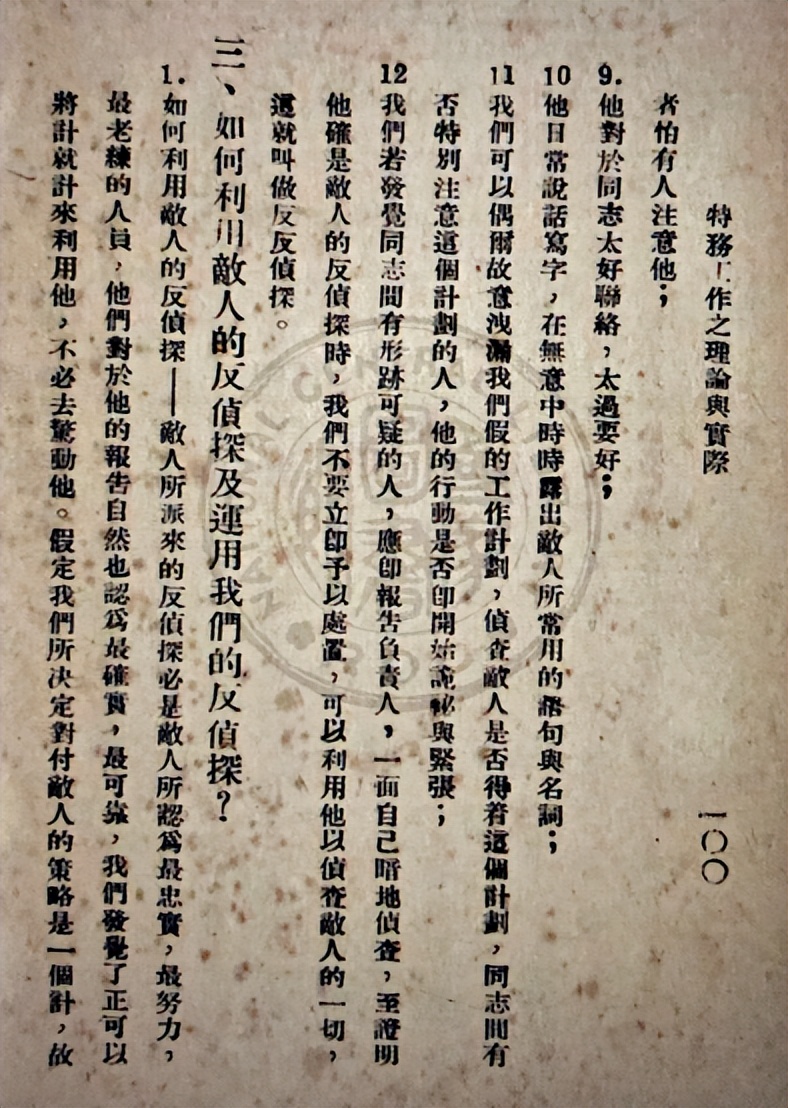 特務工作之理論與實際
一〇〇
者怕有人注意他；
9. 他對於同志太好聯絡，太過要好；
10 他日常說話寫字，在無意中時時露出敵人所常用的語句與名詞；
11 我們可以偶爾故意洩漏我們假的工作計劃，偵查敵人是否得着這個計劃，同志間有
否特別注意這個計劃的人，他的行動是否卽開始詭祕與緊張；
12 我們若發覺同志間有形跡可疑的人，應卽報告負責人，一面自己暗地偵查，至證明
他確是敵人的反偵探時，我們不要立卽予以處置，可以利用他以偵查敵人的一切，
這就叫做反反偵探。
三、如何利用敵人的反偵探及運用我們的反偵探？
1. 如何利用敵人的反偵探——敵人所派來的反偵探必是敵人所認爲最忠實，最努力，
最老練的人員，他們對於他的報告自然也認爲最確實，最可靠，我們發覺了正可以
將計就計來利用他，不必去驚動他。假定我們所決定對付敵人的策略是一個計，故